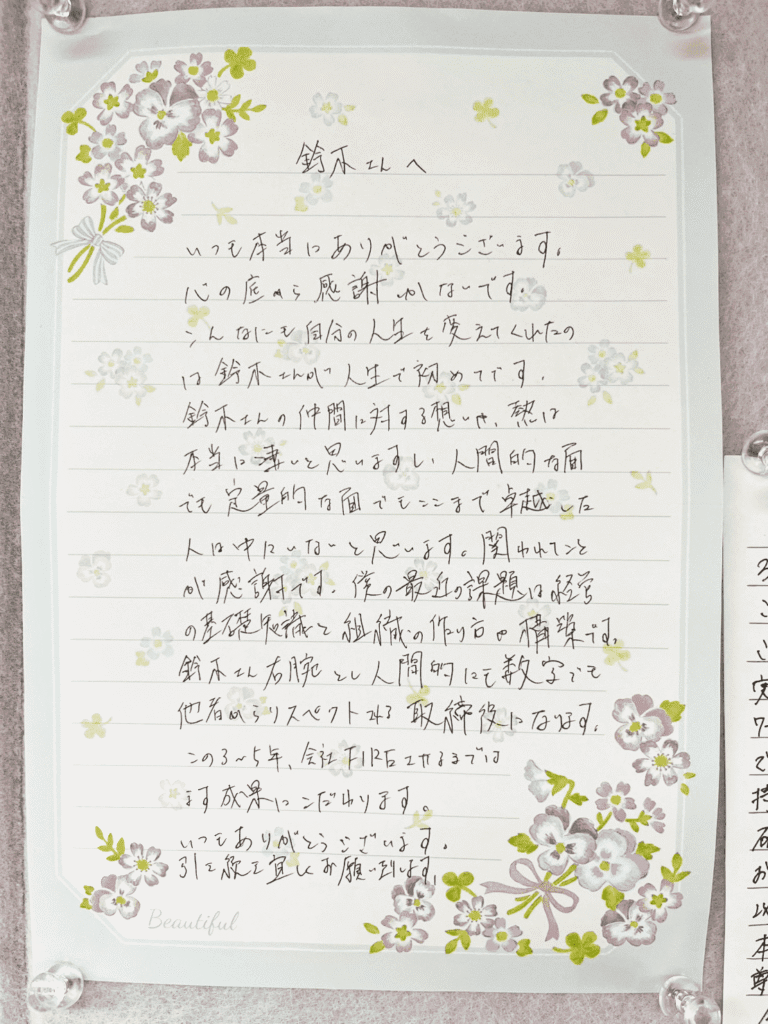 鈴木さんへ
いつも本当にありがとうございます。
心の底から感謝しかないです。
こんなにも自分の人生を変えてくれたの
は鈴木さんが人生で初めてです.
鈴木さんの仲間に対する想いや、熱は
本当に凄いと思いますし、人間的な面
でも定量的な面でもここまで卓越した
人は中にいないと思います。関われてこと
が感謝です.僕の最近の課題は経営
の基礎知識と組織の作り方や構築です。
鈴木さん右腕とし人間的にも数字でも
他者からリスペクトされる取締役になります。
この3〜5年、会社FIREさせるまでは
ます成果にこだわります。
いつもありがとうございます.
引き続き宜しくお願い致します.
Beautiful
ろ
こ
実
ワー
で
持
石
お
以
本
尊